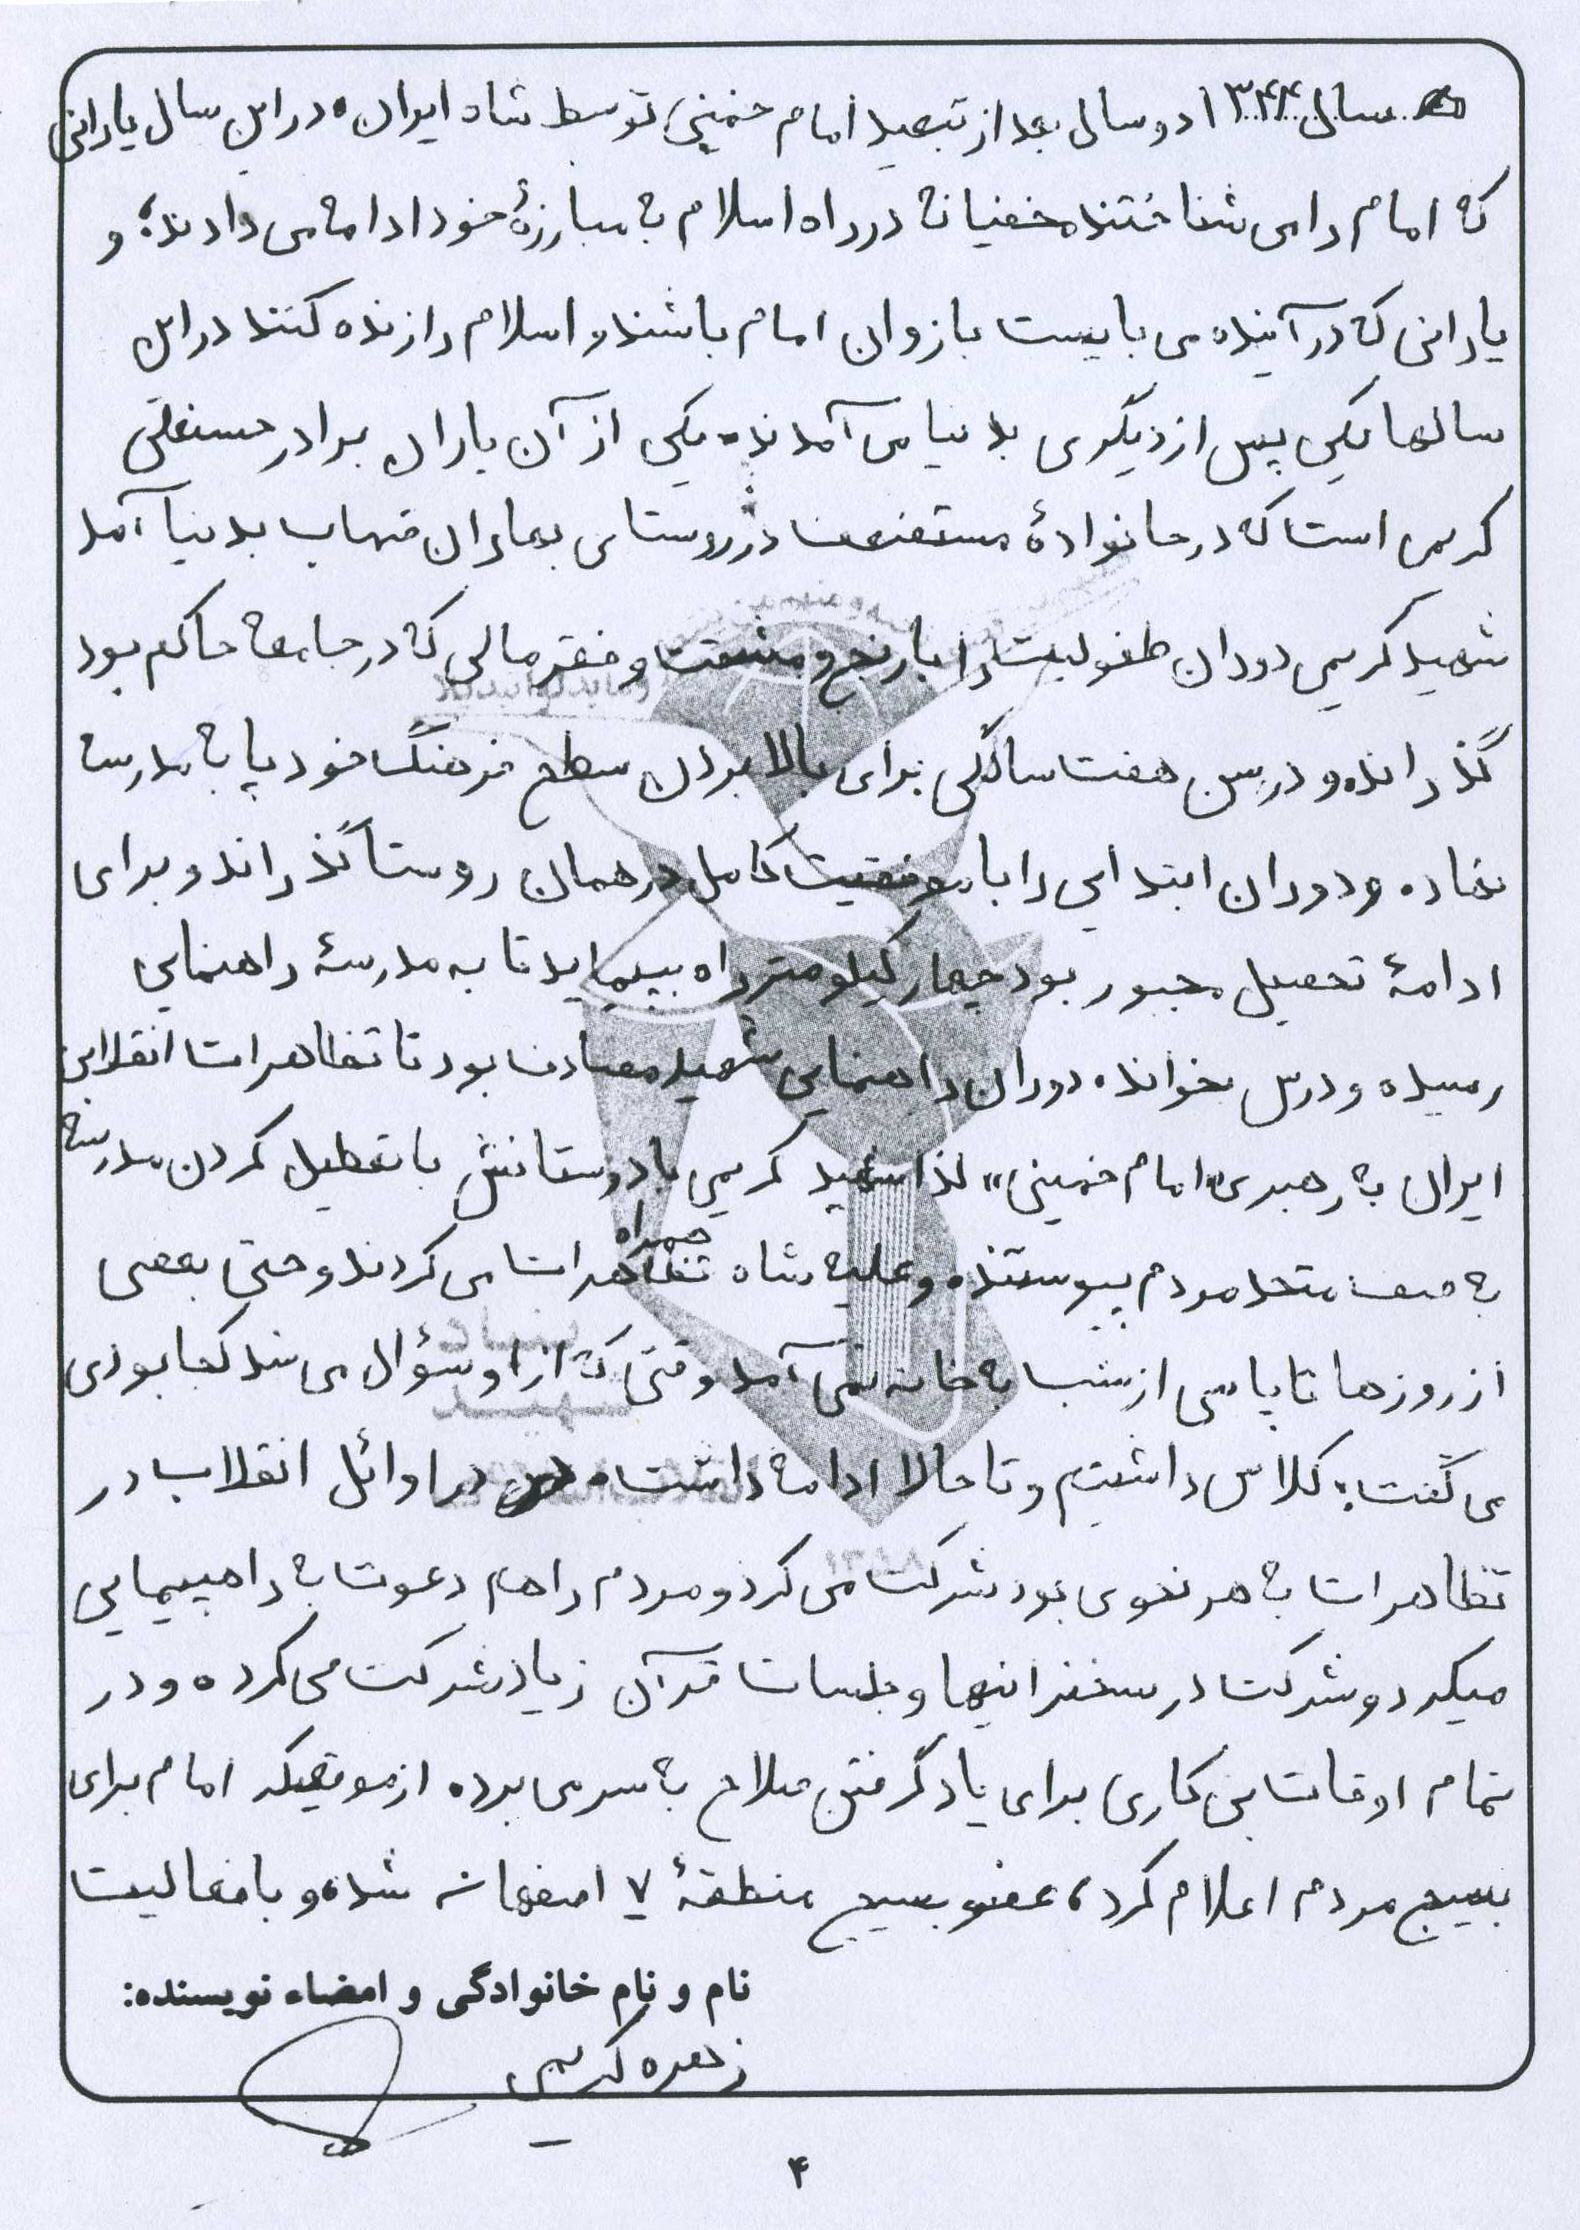 سال ۱۳۴۴ دو سال بعد از تبعید امام خمینی توسط شاه ایران، در این سال یارانی
که امام را می شناختند مخفیانه در راه اسلام به مبارزهٔ خود ادامه می دادند؛ و
یارانی که در آینده می بایست بازوان امام باشند و اسلام را زنده کنند در این
سالها یکی پس از دیگری بدنیا می آمدند، یکی از آن یاران برادر حسنعلی
کریمی است که در خانوادهٔ مستضعف در روستای بهاران بدنیا آمد
شهید کریمی دوران طفولیت را با رنج و مشقت و فقر مالی که در جامعه حاکم بود
گذرانده و در سن هفت سالگی برای بالا بردن سطح فرهنگ خود پا به مدرسه
نهاده و دوران ابتدایی را با موفقیت کامل در همان روستا گذراند و برای
ادامهٔ تحصیل مجبور بود چهار کیلومتر راه بپیماید تا به مدرسهٔ راهنمایی
رسیده و درس بخواند، دوران راهنمایی شهید مصادف بود تا تظاهرات انقلابی
ایران به رهبری «امام خمینی» لذا شهید کریمی با دوستانش با تعطیل کردن مدرسه
به صف متحد مردم پیوستند، و علیه شاه همراه تظاهرات می کردند و حتی بعضی
از روزها تا پاسی از شب به خانه نمی آمد وقتی که از او سؤال می شد کجا بودی
می گفت: کلاس داشتیم و تا حالا ادامه داشت، در اوائل انقلاب در
تظاهرات به هر نحوی بود شرکت می کرد و مردم را هم دعوت به راهپیمایی
میکرد و شرکت در سخنرانیها و جلسات قرآن زیاد شرکت می کرده و در
تمام اوقات بی کاری برای یاد گرفتن سلاح به سر می برد، از موقعیکه امام برای
بسیج مردم اعلام کرد، عضو بسیج منطقهٔ ۷ اصفهان شده و با فعالیت
نام و نام خانوادگی و امضاء نویسنده:
زهره کریمی
۴